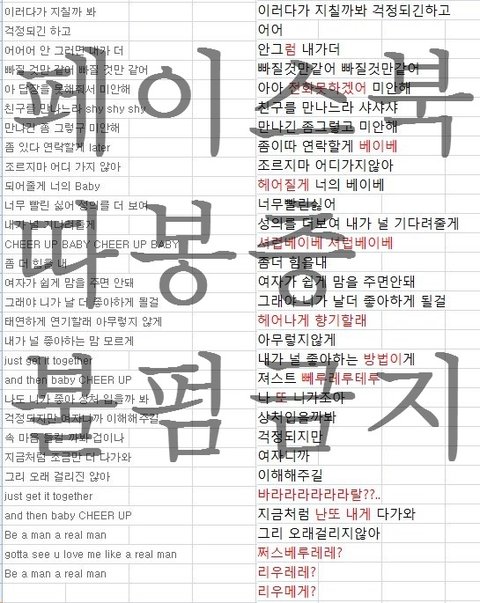 이러다가 지칠까 봐
걱정되긴 하고
어어어 안 그러면 내가 더
빠질 것만 같어 빠질 것만 같어
아 답장을 못해줘서 미안해
친구를 만나느라 shy shy shy
만나긴 좀 그렇구 미안해
좀 있다 연락할게 later
조르지마 어디 가지 않아
되어줄게 너의 Baby
너무 빨린 싫어 성의를 더 보여
내가 널 기다려줄게
CHEER UP BABY CHEER UP BABY
좀 더 힘을 내
여자가 쉽게 맘을 주면 안돼
그래야 니가 날 더 좋아하게 될걸
태연하게 연기할래 아무렇지 않게
내가 널 좋아하는 맘 모르게
just get it together
and then baby CHEER UP
나도 니가 좋아 상처 입을까 봐
걱정되지만 여자니까 이해해주길
속 마음 들킬 까봐 겁이나
지금처럼 조금만 더 다가와
그리 오래 걸리진 않아
just get it together
and then baby CHEER UP
Be a man a real man
gotta see u love me like a real man
Be a man a real man
이러다가 지칠까봐 걱정되긴하고
어어
안그럼 내가더
빠질것만같어 빠질것만같어
아아 전화못하겠어 미안해
친구를 만나느라 샤샤샤
만나긴 좀그렇고 미안해
좀이따 연락할게 베이베
조르지마 어디가지않아
헤어질게 너의 베이베
너무빨린싫어
성의를 더보여 내가 널 기다려줄게
셔럽베이베 셔럽베이베
좀더 힘을내
여자가 쉽게 맘을 주면안돼
그래야 니가 날더 좋아하게 될걸
헤어나게 향기할래
아무렇지않게
내가 널 좋아하는 방법이게
져스트 뻬루레루테루
나 또 니가조아
상처입을까봐
걱정되지만
여자니까
이해해주길
바라라라라라라랄??..
지금처럼 난또 내게 다가와
그리 오래걸리지않아
쩌스베루레레?
리우레레?
리우메게?
페이스북
다봉중
불펌금지